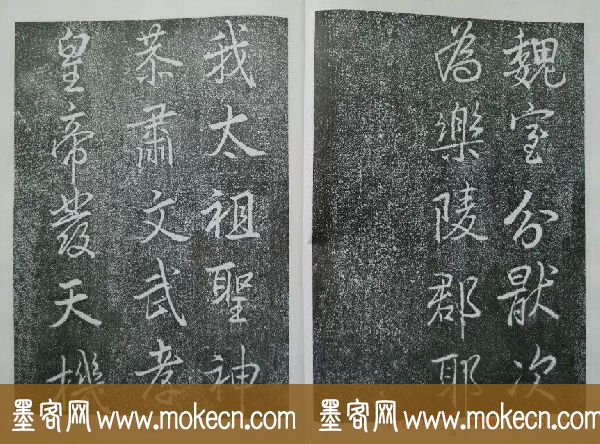 魏室分次
為樂陵郡耶
我太祖聖神
恭肅文武孝
皇帝發天機
墨客网 www.mokecn.com 墨客网 www.mokecn.com